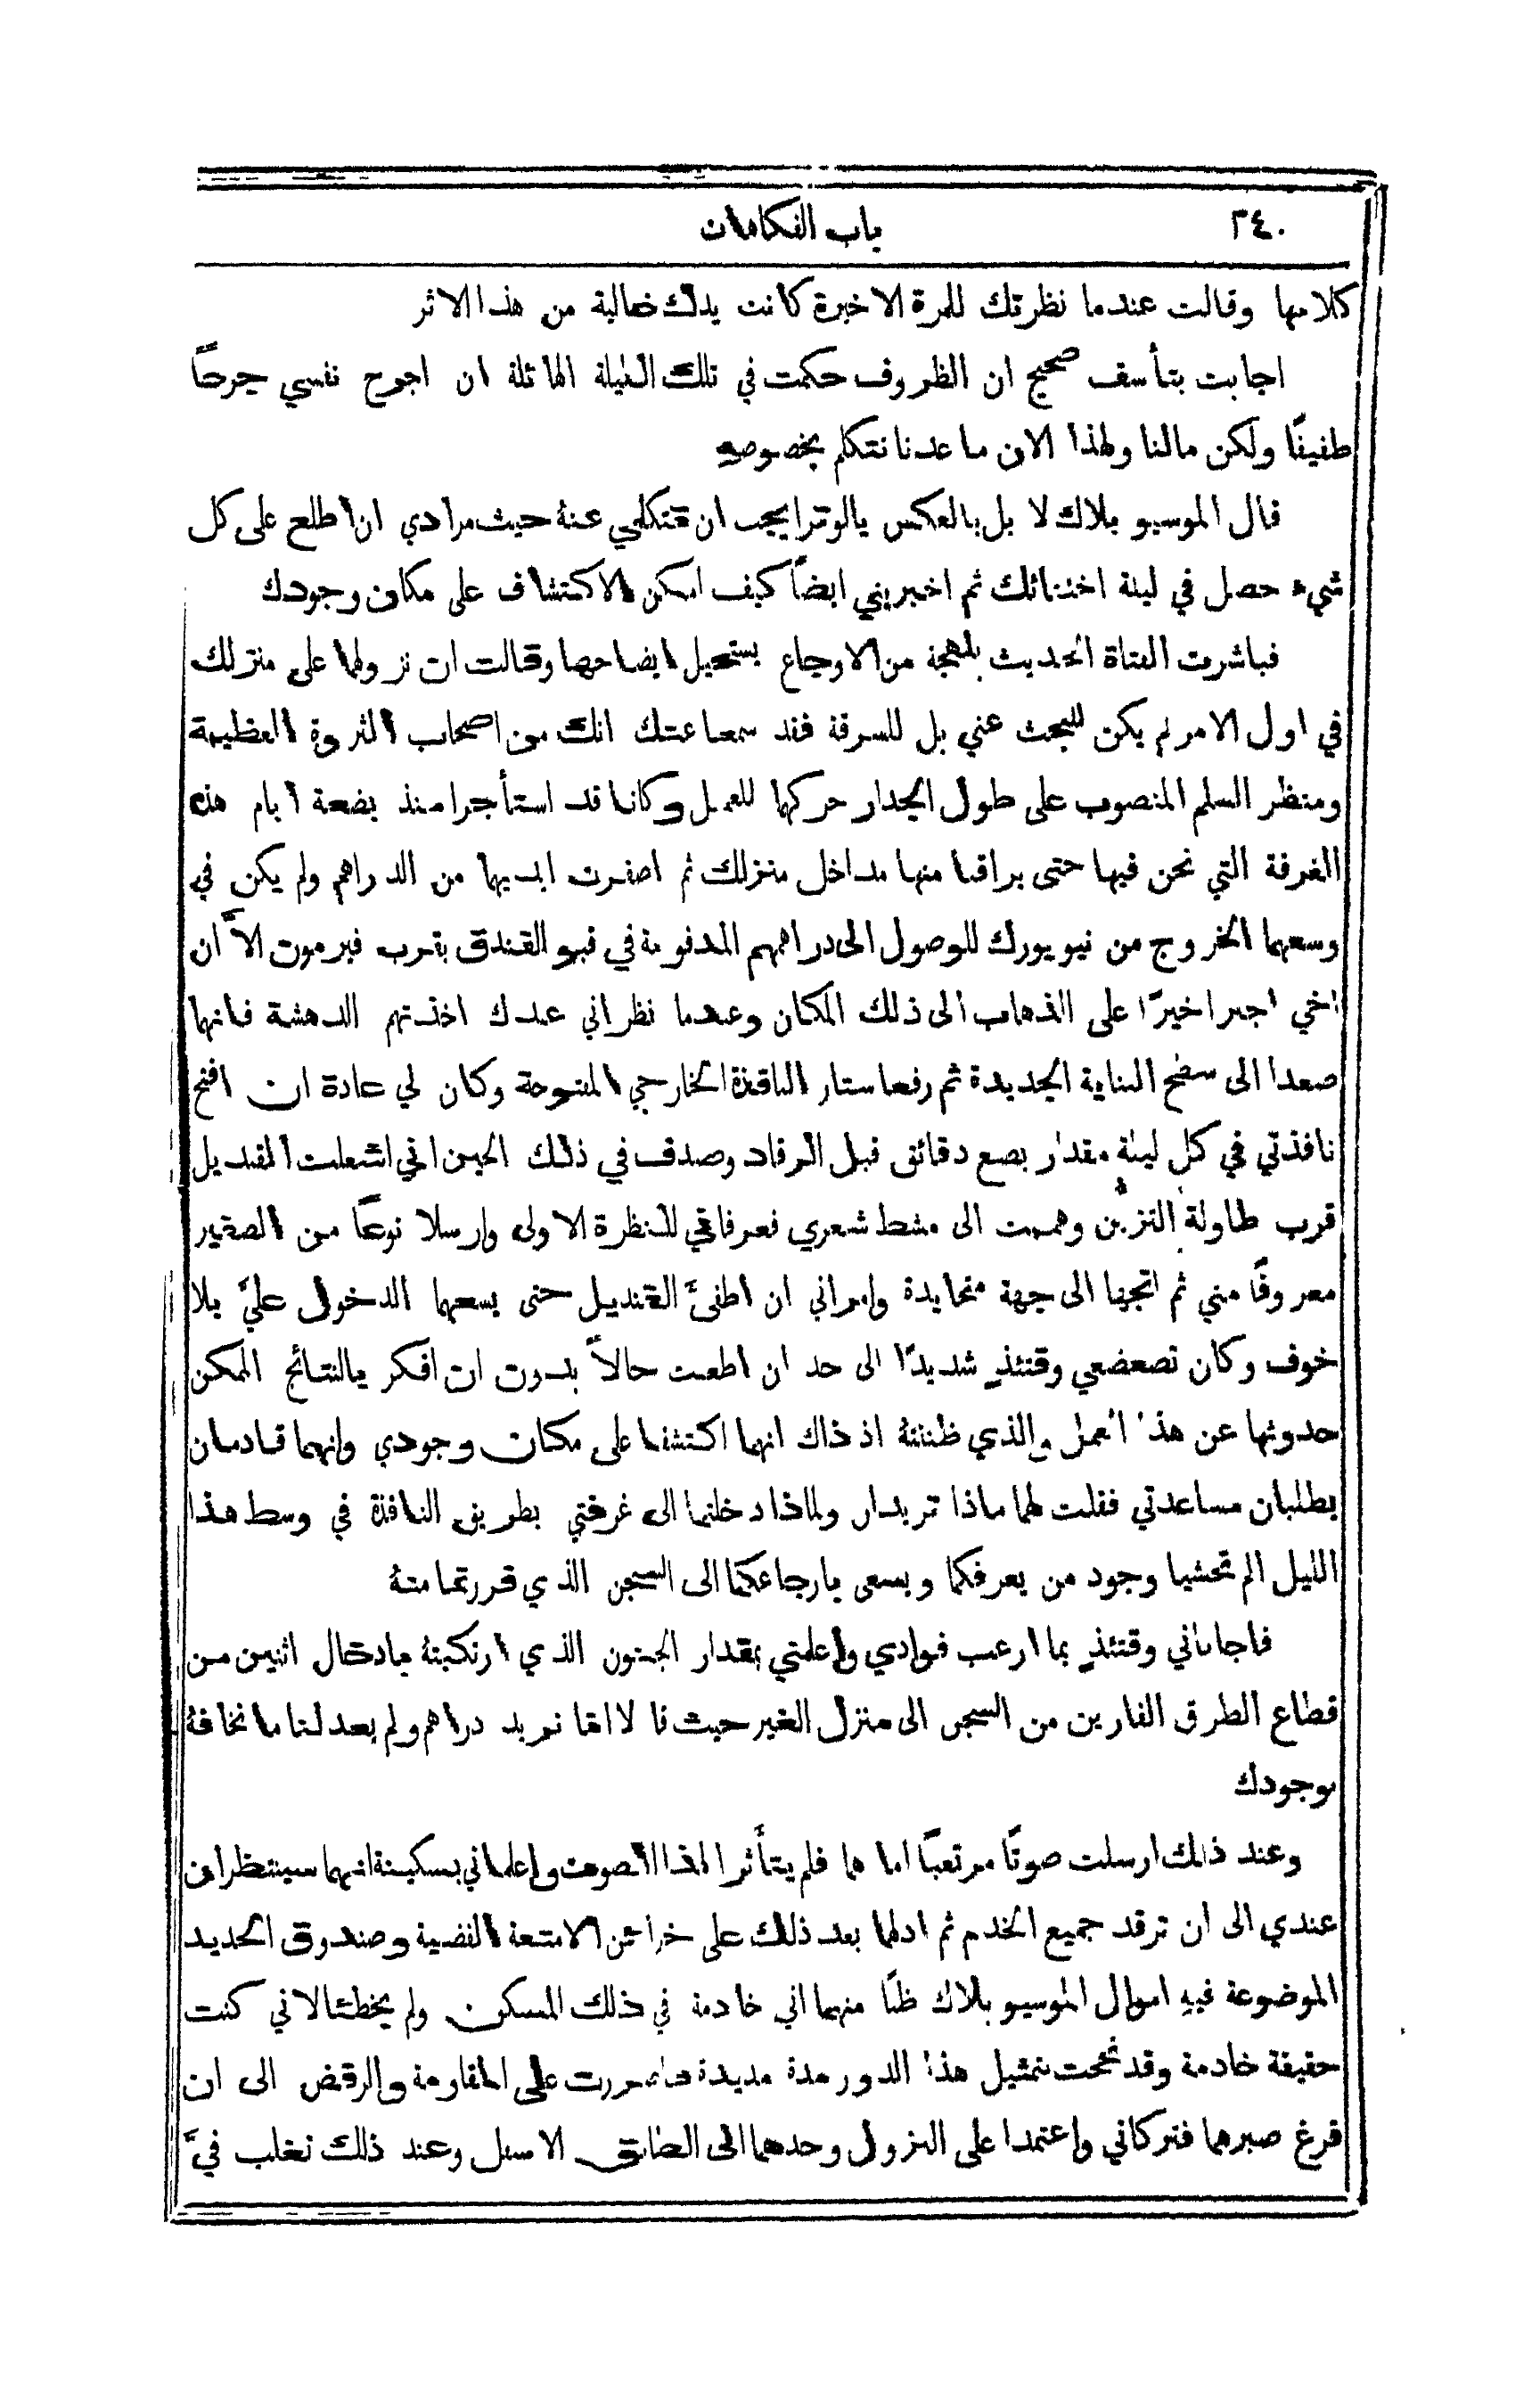 ٢٤٠ باب الفكاهات
كلامها وقالت عندما نظرتك للمرة الاخيرة كانت يدك خالية من هذا الاثر
اجابت بتأسف صحيح ان الظروف حكمت في تلك الليلة الهائلة ان اجرح نفسي جرحًا
طفيفًا ولكن مالنا ولهذا الان ما عدنا نتكلم بخصوصه
قال الموسيو بلاك لا بل بالعكس يالوترا يجب ان تتكلمي عنهُ حيث مرادي ان اطلع على كل
شيء حصل في ليلة اختفائك ثم اخبريني ايضاً كيف امكن الاكتشاف على مكان وجودك
فباشرت الفتاة الحديث بلهجة من الاوجاع يستحيل ايضاحها وقالت ان نزولهما على منزلك
في اول الامر لم يكن للبحث عني بل للسرقة فقد سمعا عنك انك من اصحاب الثروة العظيمة
ومنظر السلم المنصوب على طول الجدار حركهما للعمل وكانا قد استأجرا منذ بضعة ايام هذه
الغرفة التي نحن فيها حتى يراقبا منها مداخل منزلك ثم اصفرت ايديهما من الدراهم ولم يكن في
وسعهما الخروج من نيويورك للوصول الى دراهمهم المدفونة في قبو الفندق بقرب فيرموت الاَّ ان
اخي اجبر اخيرًا على الذهاب الى ذلك المكان وعندما نظراني عندك اخذتهم الدهشة فانهما
صعدا الى سطح البناية الجديدة ثم رفعا ستار النافذة الخارجي المفتوحة وكان لي عادة ان افتح
نافذتي في كل ليلة مقدار بضع دقائق قبل الرقاد وصدف في ذلك الحين اني اشعلت القنديل
قرب طاولة التزين وهممت الى مشط شعري فعرفاني للنظرة الاولى وارسلا نوعًا من الصفير
معروفًا مني ثم اتجها الى جهة متحايدة وامراني ان اطفئَ القنديل حتى يسعهما الدخول عليَّ بلا
خوف وكان تضعضعي وقتئذٍ شديدًا الى حد ان اطعت حالاً بدون ان افكر بالنتائج الممكن
حدوثها عن هذا العمل والذي ظننتهُ اذ ذاك انهما اكتشفا على مكان وجودي وانهما قادمان
يطلبان مساعدتي فقلت لهما ماذا تريدان ولماذا دخلتما الى غرفتي بطريق النافذة في وسط هذا
الليل الم تخشيا وجود من يعرفكما ويسعى بارجاعكما الى السجن الذي فررتما منهُ
فاجاباني وقتئذٍ بما ارعب فوادي واعلمني بمقدار الجنون الذي ارتكبتهُ بادخال اثنين من
قطاع الطرق الفارين من السجن الى منزل الغير حيث قالا اننا نريد دراهم ولم يعد لنا ما نخافهُ
بوجودك
وعند ذلك ارسلت صوتًا مرتعبًا اما هما فلم يتأثرا لهذا الصوت واعلماني بسكينة انهما سينتظران
عندي الى ان ترقد جميع الخدم ثم ادلهما بعد ذلك على خزائن الامتعة الفضية وصندوق الحديد
الموضوعة فيهِ اموال الموسيو بلاك ظنًا منهما اني خادمة في ذلك المسكن ولم يخطئا لاني كنت
حقيقة خادمة وقد نجحت بتمثيل هذا الدور مدة مديدة على المقاومة والرفض الى ان
فرغ صبرهما فتركاني واعتمدا على النزول وحدهما الى الطابق الاسفل وعند ذلك تغلب فيَّ